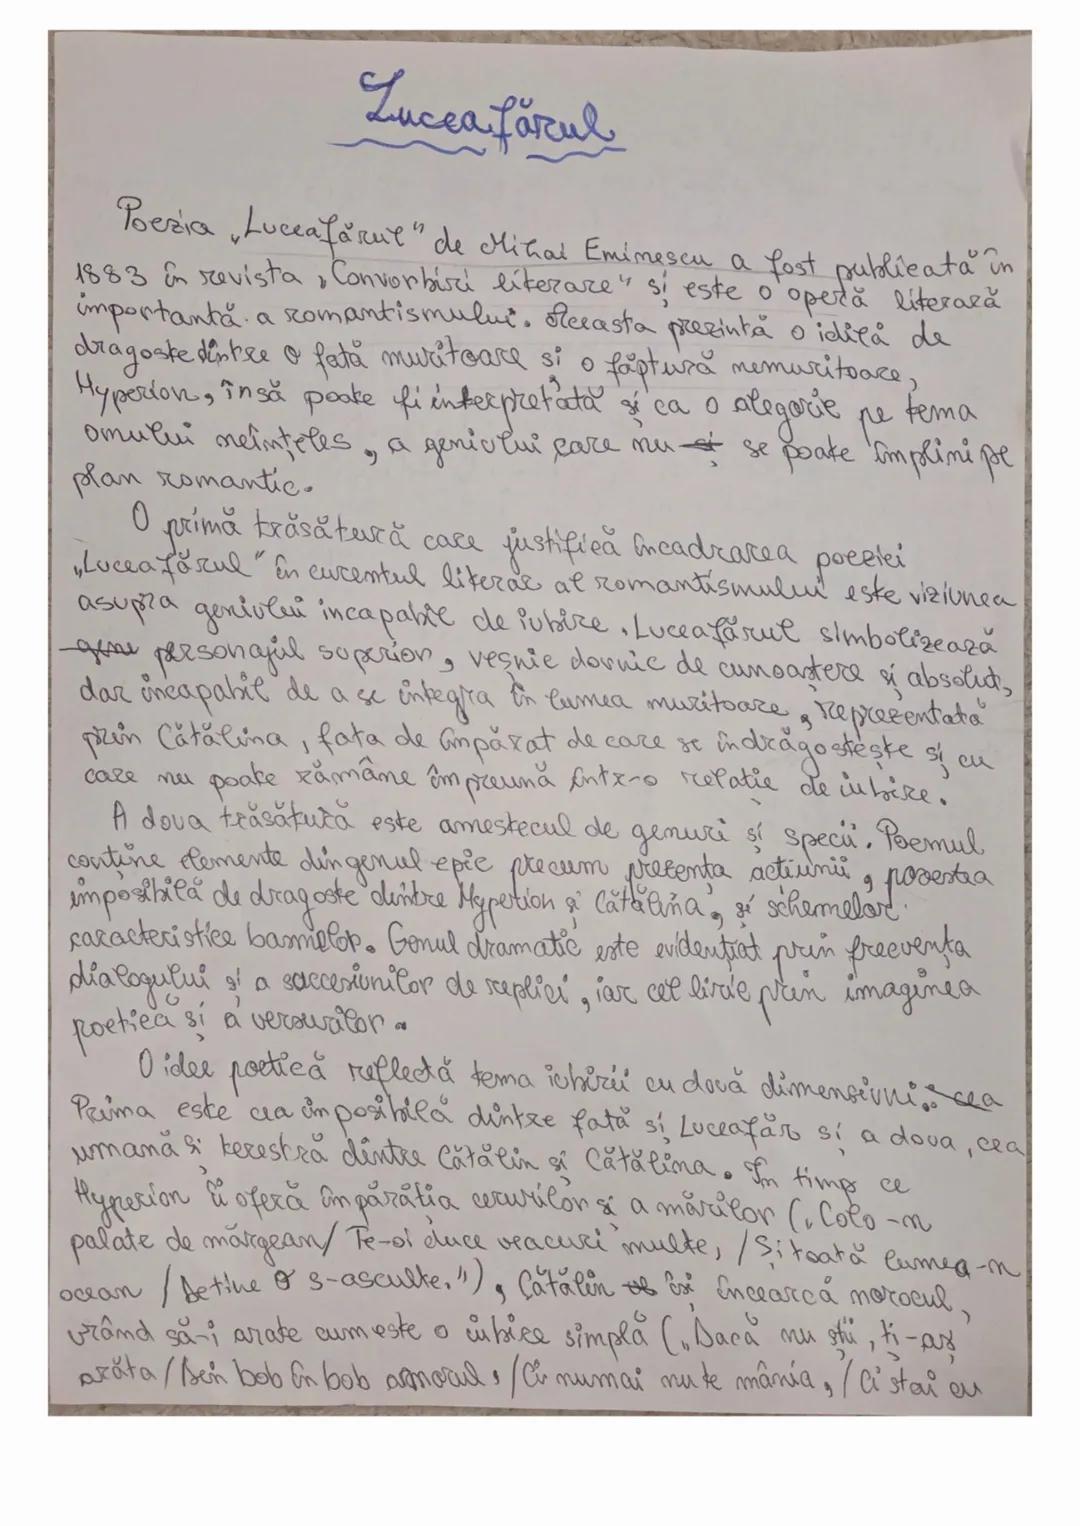 Luceafărul
Poezia „Luceafărul" de Mihai Eminescu a fost publicată în
1883 în revista „Convorbiri literare" și este o operă literară
importantă a romantismului. Aceasta prezintă o idilă de
dragoste dintre o fată muritoare și o făptură nemuritoare,
Hyperion, însă poate fi interpretată și ca o alegorie pe tema
omului neînțeles, a geniului care nu se poate împlini pe
plan romantic.
O primă trăsătură care justifică încadrarea poeziei
„Luceafărul" în curentul literar al romantismului este viziunea
asupra geniului incapabil de iubire. Luceafărul simbolizează
personajul superior, veșnic dornic de cunoaștere și absolut,
dar incapabil de a se integra în lumea muritoare, reprezentată
prin Cătălina, fata de împărat de care se îndrăgostește și cu
care nu poate rămâne împreună într-o relație de iubire.
A doua trăsătură este amestecul de genuri și specii. Poemul
conține elemente din genul epic precum prezența acțiunii, povestea
imposibilă de dragoste dintre Hyperion și Cătălina, și schemelor
caracteristice basmelor. Genul dramatic este evidențiat prin frecvența
dialogului și a succesiunilor de replici, iar cel liric prin imaginea
poetică și a versurilor.
O idee poetică reflectă tema iubirii cu două dimensiuni:
Prima este cea imposibilă dintre fată și Luceafăr și a doua, cea
umană și terestră dintre Cătălin și Cătălina. În timp ce
Hyperion îi oferă împărăția cerurilor și a mărilor („Colo-n
palate de mărgean/ Te-oi duce veacuri multe, /Și toată lumea-n
ocean /De tine o s-asculte."), Cătălin își încearcă norocul,
vrând să-i arate cum este o iubire simplă („Dacă nu știi, ți-aș
arăta /Din bob în bob amorul, /Ci numai nu te mânia, /Ci stai cu